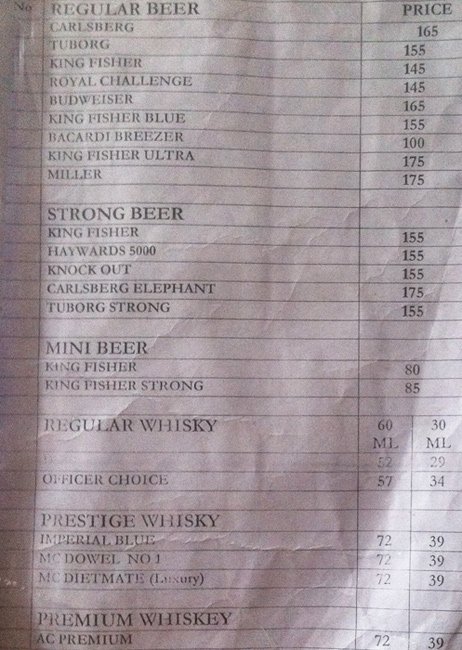 No REGULAR BEER PRICE
CARLSBERG 165
TUBORG 155
KING FISHER 145
ROYAL CHALLENGE 145
BUDWEISER 165
KING FISHER BLUE 155
BACARDI BREEZER 100
KING FISHER ULTRA 175
MILLER 175
STRONG BEER
KING FISHER 155
HAYWARDS 5000 155
KNOCK OUT 155
CARLSBERG ELEPHANT 175
TUBORG STRONG 155
MINI BEER
KING FISHER 80
KING FISHER STRONG 85
REGULAR WHISKY 60 30
ML ML
52 29
OFFICER CHOICE 57 34
PRESTIGE WHISKY
IMPERIAL BLUE 72 39
MC DOWEL NO 1 72 39
MC DIETMATE (Luxury) 72 39
PREMIUM WHISKEY
AC PREMIUM 72 39